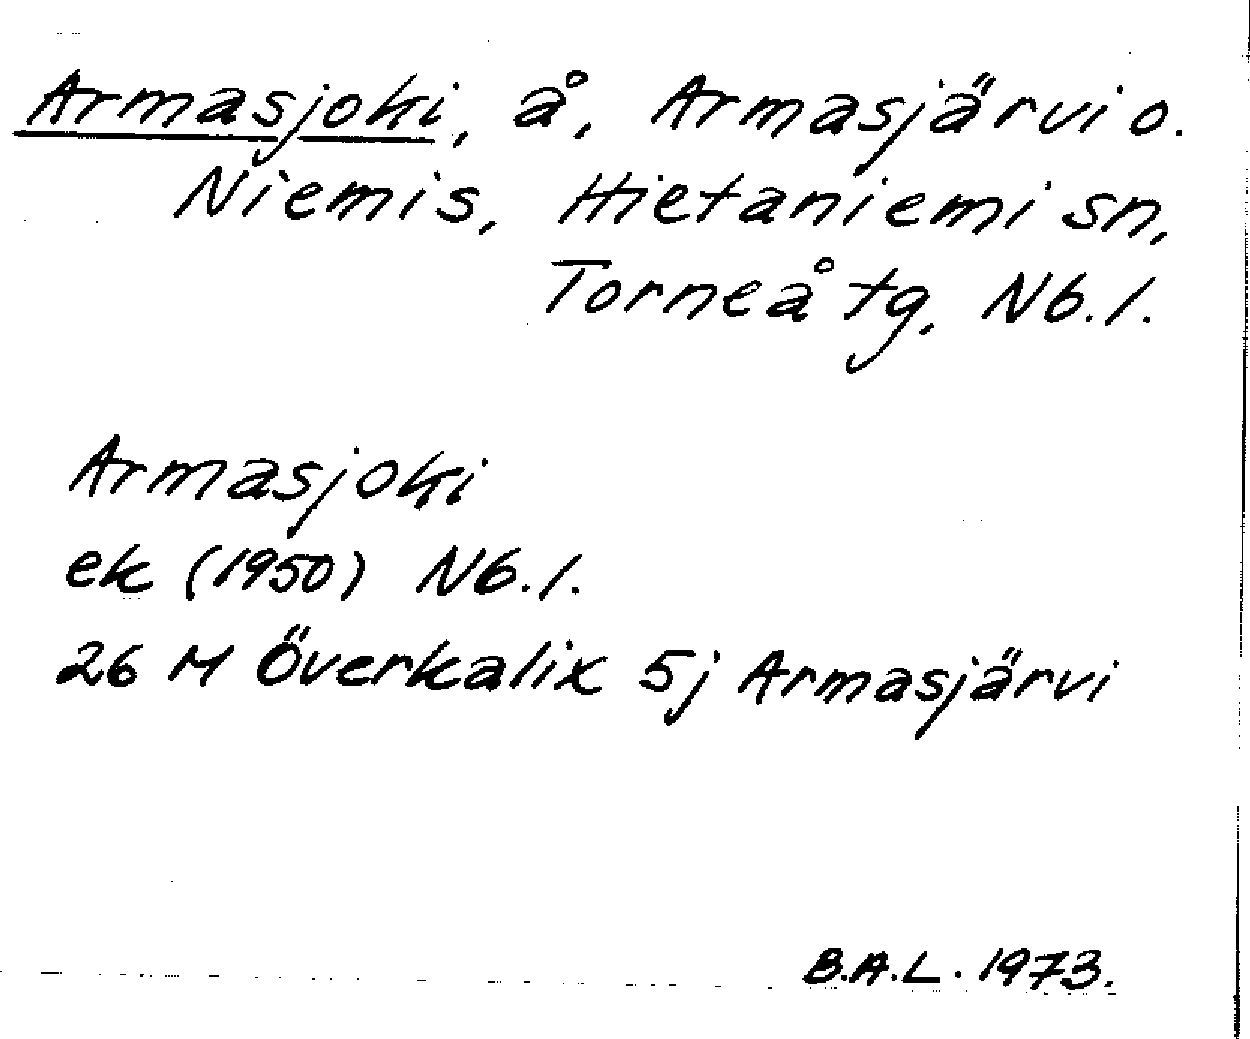 Armasjoki, å, Armasjärvi o.
Niemis, Hietaniemi sn,
Torneå tg, Nb. l.
Armasjoki
ek (1950) Nb. l.
26 M Överkalix 5j Armasjärvi
B.A.L. 1973.